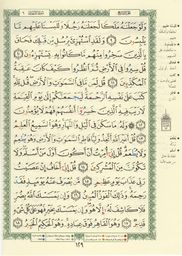 وَلَوْ جَعَلْنَٰهُ مَلَكًا لَّجَعَلْنَٰهُ رَجُلًا وَلَلَبَسْنَا عَلَيْهِم مَّا
يَلْبِسُونَ ٩ وَلَقَدِ ٱسْتُهْزِئَ بِرُسُلٍ مِّن قَبْلِكَ فَحَاقَ
بِٱلَّذِينَ سَخِرُوا۟ مِنْهُم مَّا كَانُوا۟ بِهِۦ يَسْتَهْزِءُونَ ١٠
قُلْ سِيرُوا۟ فِى ٱلْأَرْضِ ثُمَّ ٱنظُرُوا۟ كَيْفَ كَانَ عَٰقِبَةُ
ٱلْمُكَذِّبِينَ ١١ قُل لِّمَن مَّا فِى ٱلسَّمَٰوَٰتِ وَٱلْأَرْضِ قُل لِّلَّهِ
كَتَبَ عَلَىٰ نَفْسِهِ ٱلرَّحْمَةَ لَيَجْمَعَنَّكُمْ إِلَىٰ يَوْمِ ٱلْقِيَٰمَةِ
لَا رَيْبَ فِيهِ ٱلَّذِينَ خَسِرُوٓا۟ أَنفُسَهُمْ فَهُمْ لَا يُؤْمِنُونَ
١٢ وَلَهُۥ مَا سَكَنَ فِى ٱلَّيْلِ وَٱلنَّهَارِ وَهُوَ ٱلسَّمِيعُ ٱلْعَلِيمُ
١٣ قُلْ أَغَيْرَ ٱللَّهِ أَتَّخِذُ وَلِيًّا فَاطِرِ ٱلسَّمَٰوَٰتِ وَٱلْأَرْضِ وَهُوَ يُطْعِمُ
وَلَا يُطْعَمُ قُلْ إِنِّىٓ أُمِرْتُ أَنْ أَكُونَ أَوَّلَ مَنْ أَسْلَمَ وَلَا
تَكُونَنَّ مِنَ ٱلْمُشْرِكِينَ ١٤ قُلْ إِنِّىٓ أَخَافُ إِنْ عَصَيْتُ
رَبِّى عَذَابَ يَوْمٍ عَظِيمٍ ١٥ مَّن يُصْرَفْ عَنْهُ يَوْمَئِذٍ فَقَدْ
رَحِمَهُۥ وَذَٰلِكَ ٱلْفَوْزُ ٱلْمُبِينُ ١٦ وَإِن يَمْسَسْكَ ٱللَّهُ بِضُرٍّ
فَلَا كَاشِفَ لَهُۥٓ إِلَّا هُوَ وَإِن يَمْسَسْكَ بِخَيْرٍ فَهُوَ عَلَىٰ كُلِّ شَىْءٍ
قَدِيرٌ ١٧ وَهُوَ ٱلْقَاهِرُ فَوْقَ عِبَادِهِۦ وَهُوَ ٱلْحَكِيمُ ٱلْخَبِيرُ ١٨
١٢٩